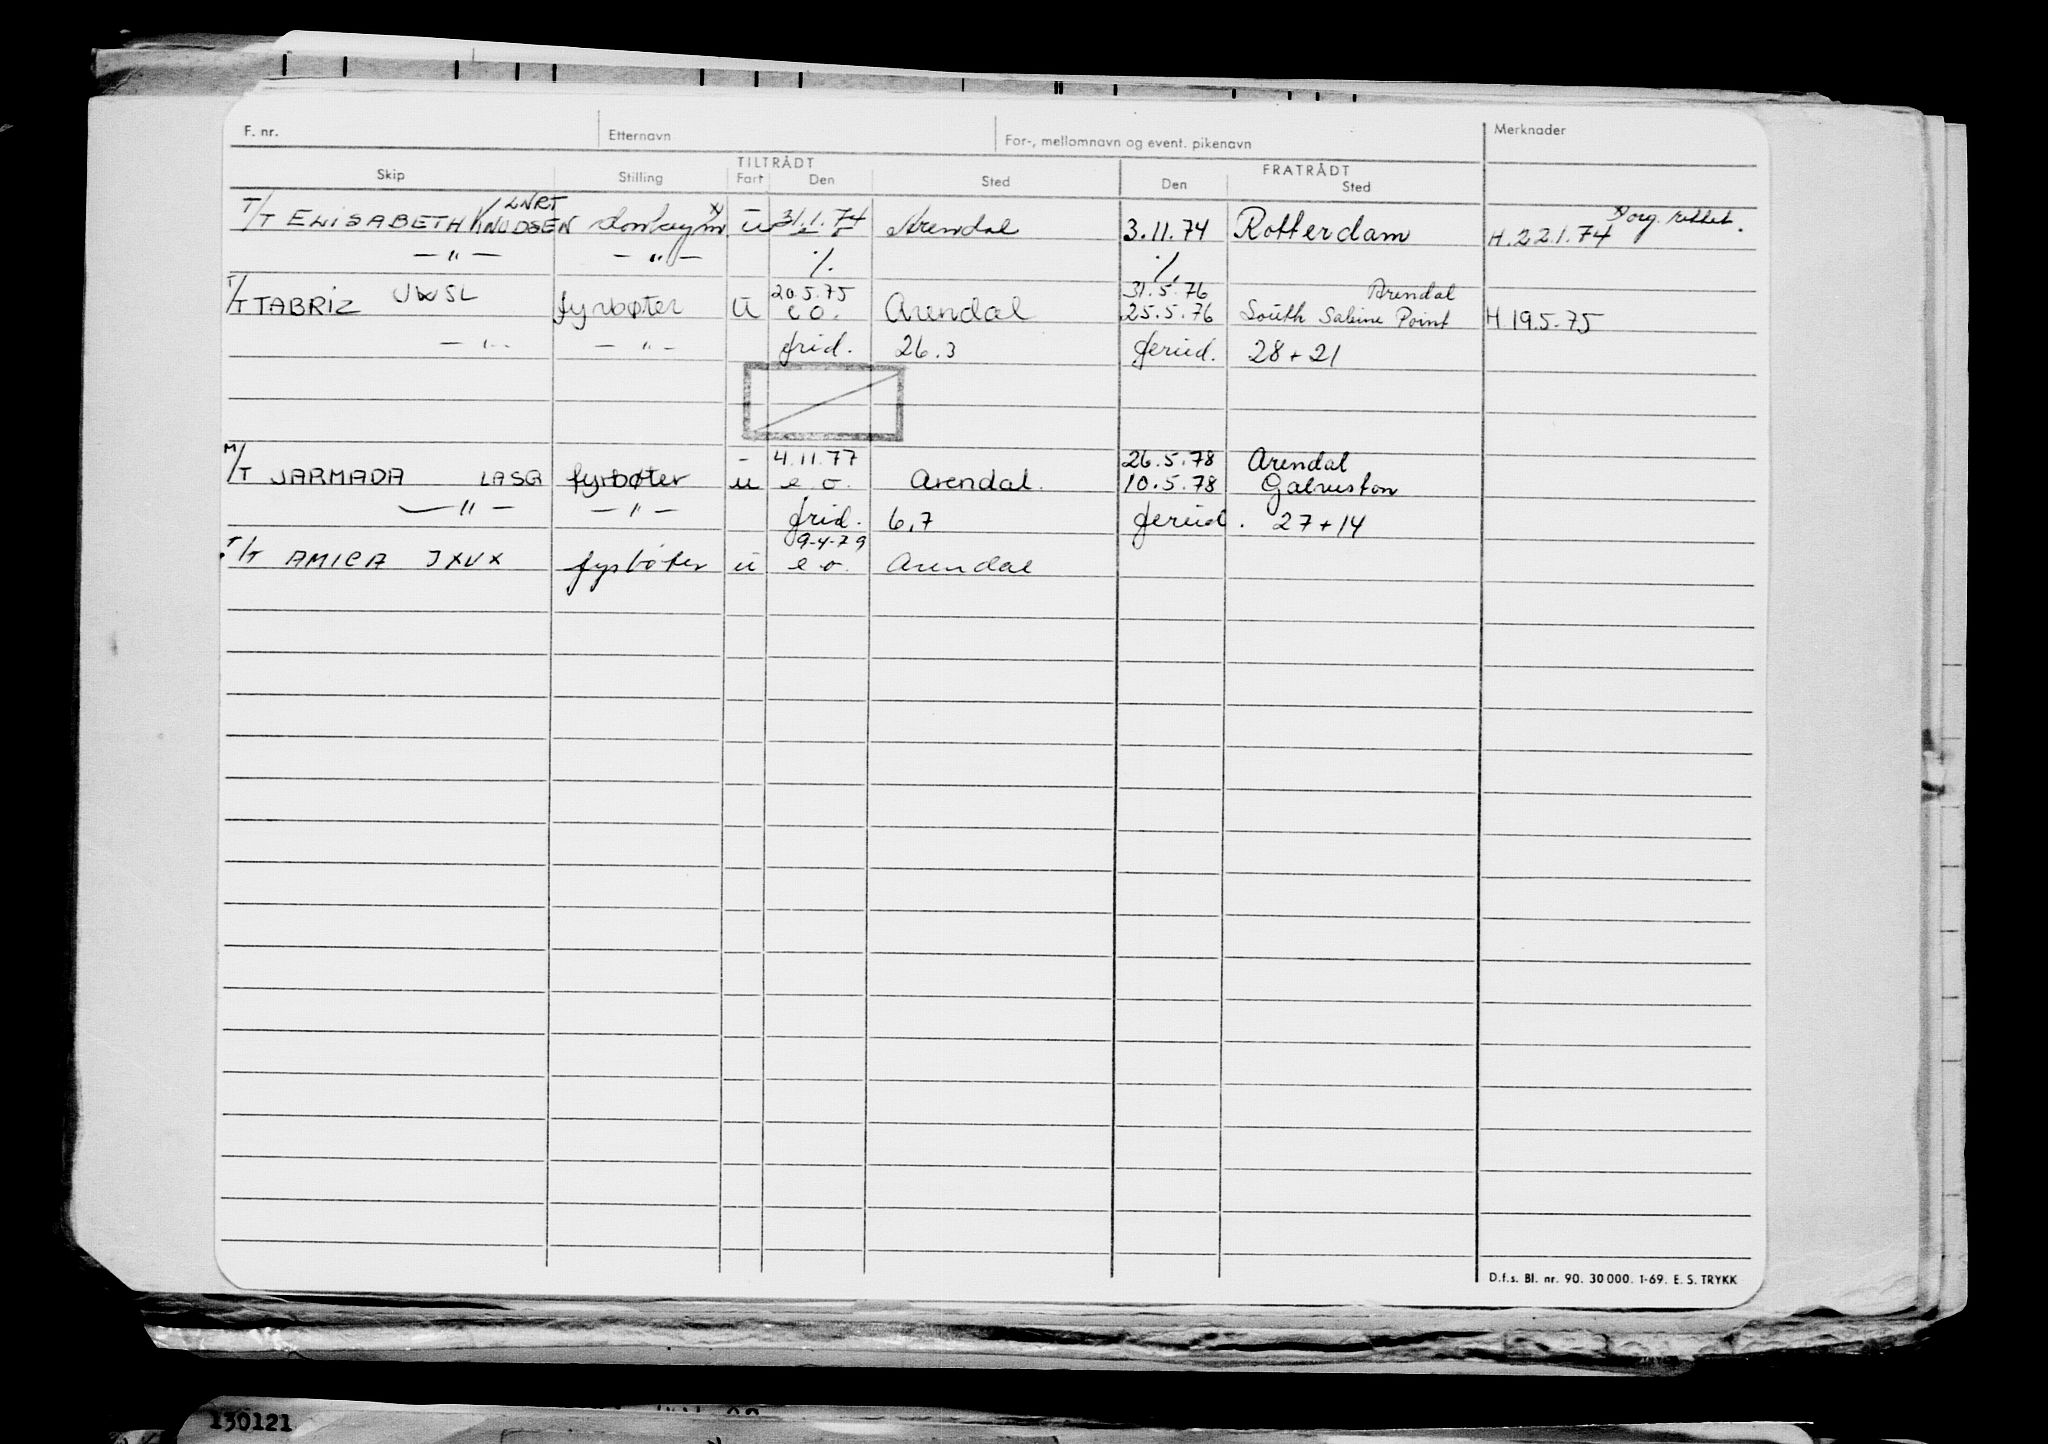 F. nr. Etternavn For-, mellomnavn og event. pikenavn Merknader
TILTRÅDT FRATRÅDT
Skip Stilling Fart Den Sted Den Sted
LNRT x) x) org. rettet.
T/T ELISABETH KNUDSEN ū 31.1.74 Arendal 3.11.74 Rotterdam H.22.1.74
— " — — " — ./. ./.
20.5.75 31.5.76 Arendal
T/T TABRIZ JWSL fyrbøter ū e o. Arendal 25.5.76 South Sabine Point H 19.5.75
— " — — " — frid. 26.3 feried. 28 + 21
4.11.77 26.5.78 Arendal
M/T JARMADA fyrbøter ū e.o. Arendal. 10.5.78 Galveston
— " — — " — frid. 6,7 feried. 27 + 14
9-4-79
T/T AMICA JXVX fyrbøter ū e.o. Arendal
D.f.s. Bl. nr. 90. 30 000. 1-69. E. S. TRYKK
130121